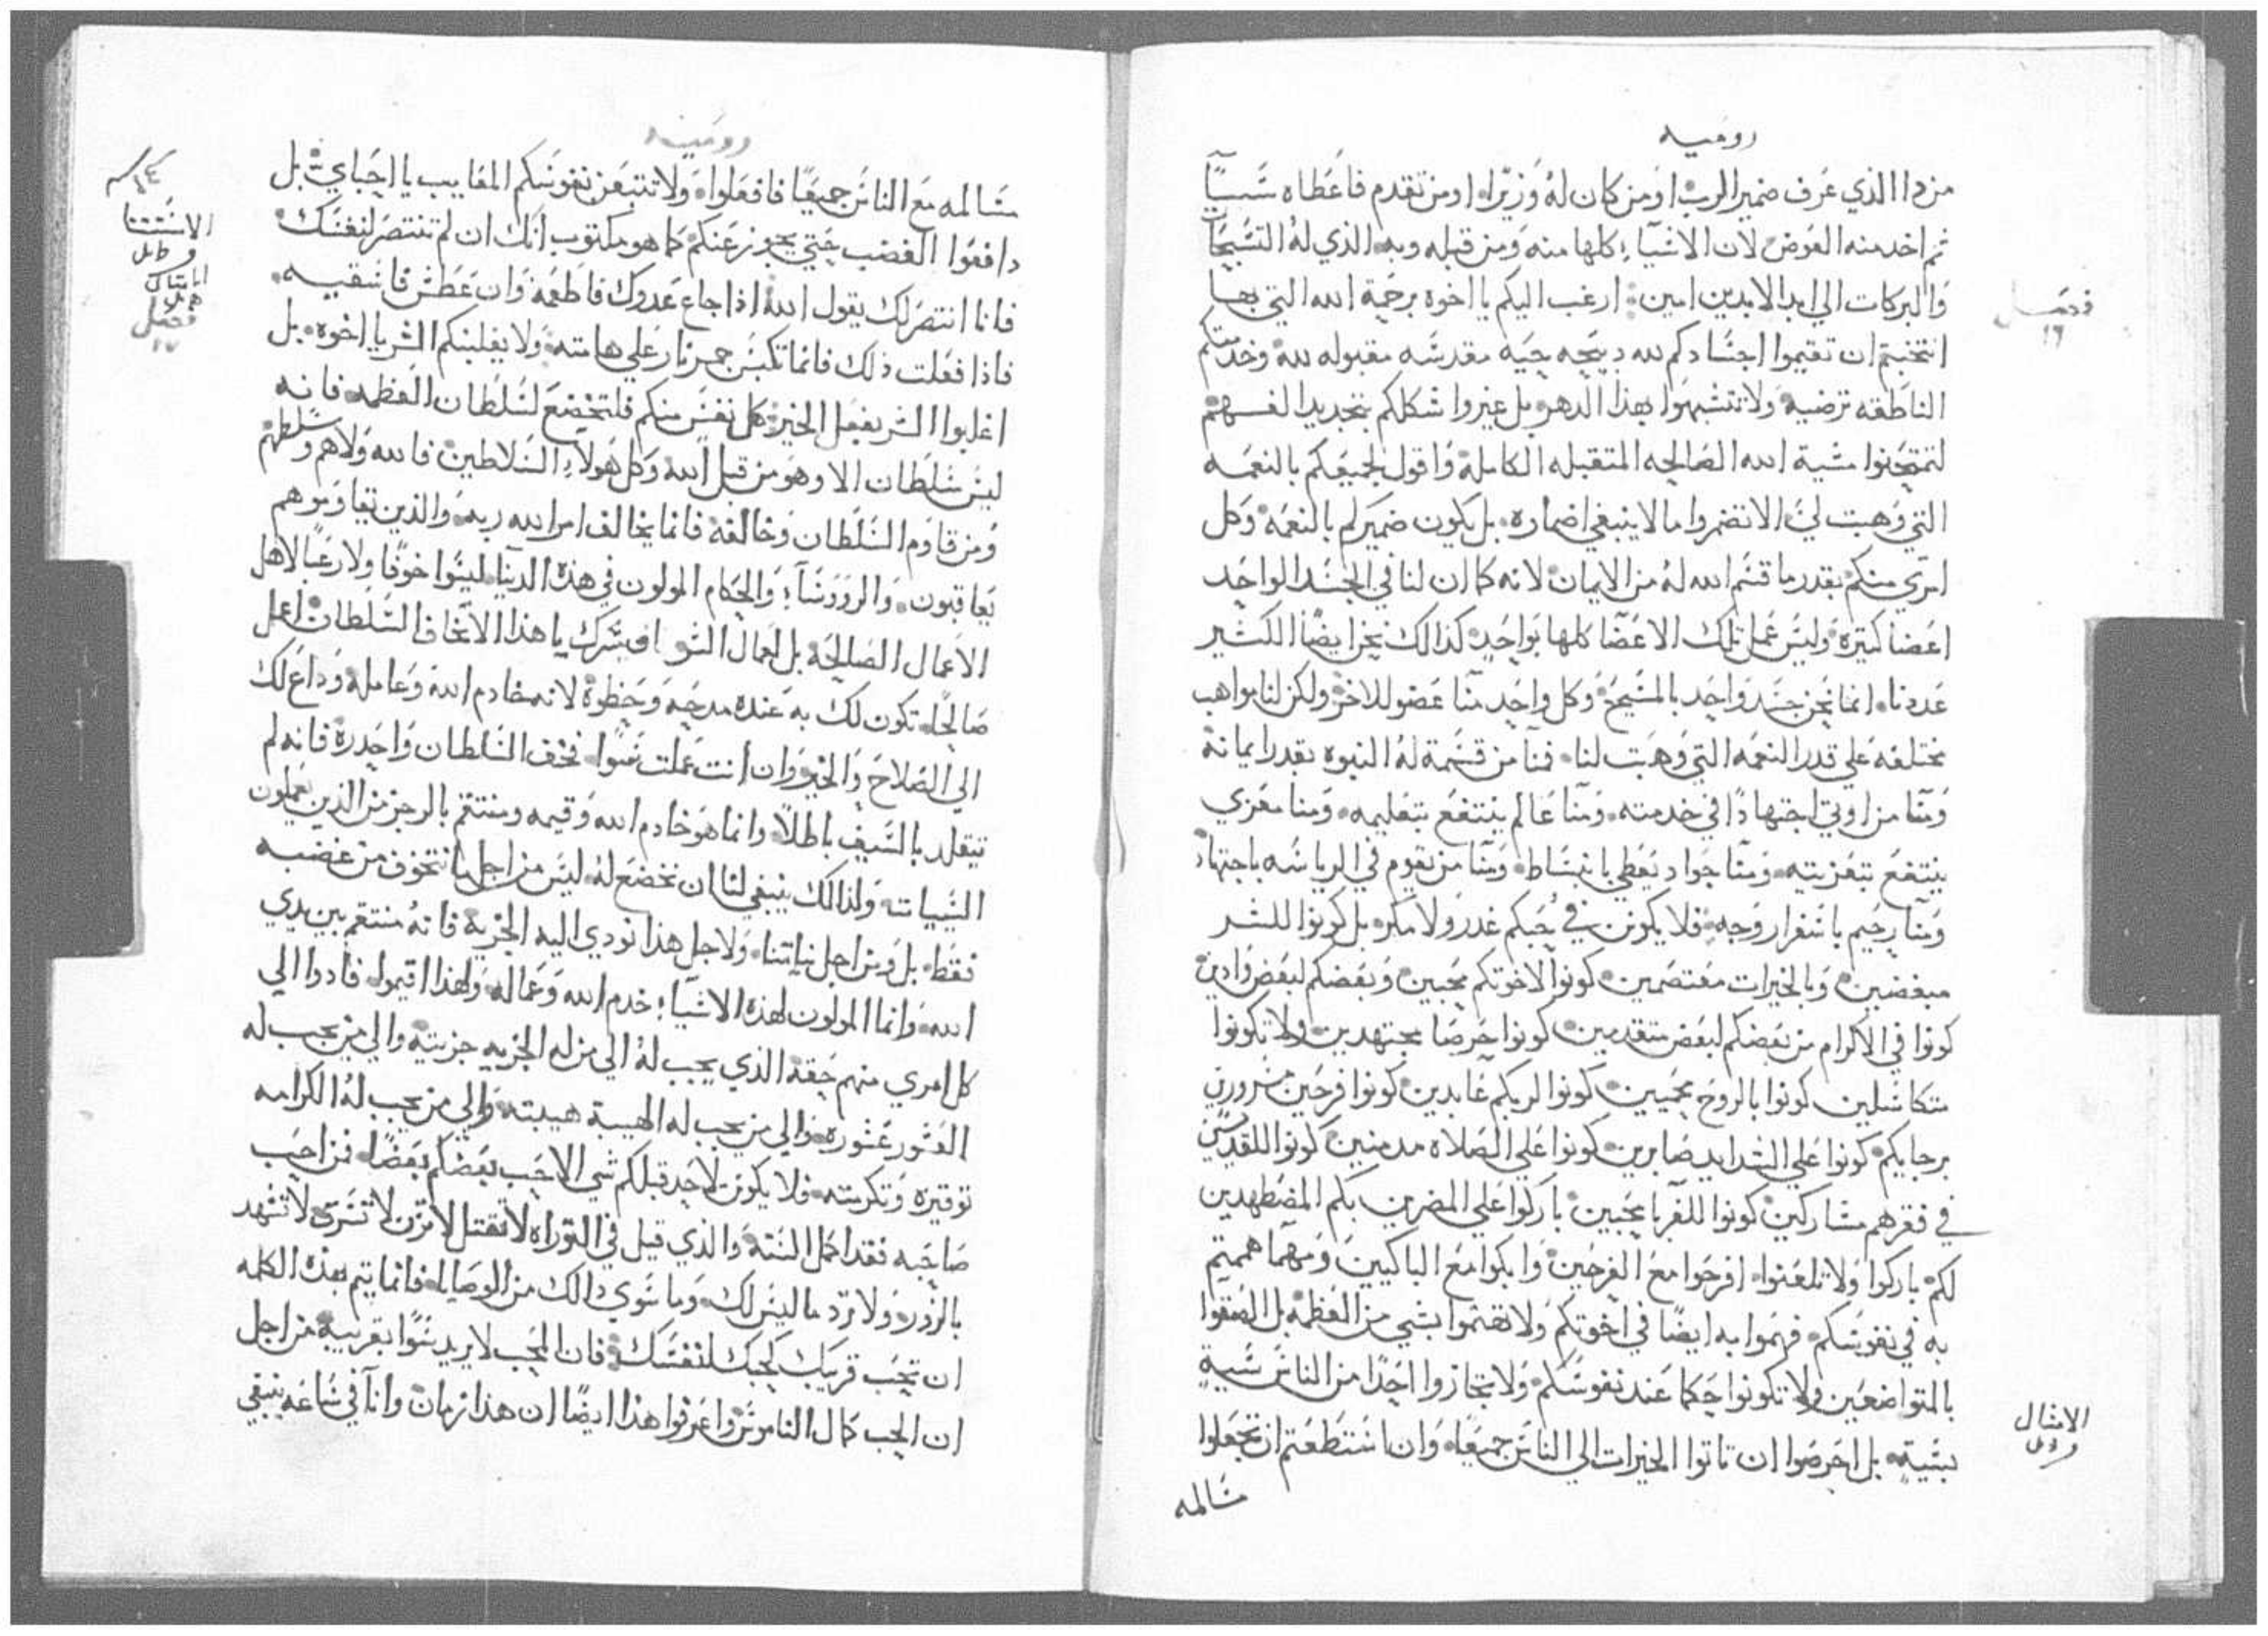 روميه
من دا الذي عرف ضمير الرب او من كان له وزيرا او من تقدم فاعطاه شيا
ثم اخد منه العوض لان الاشيآء كلها منه ومن قبله وبه الذي له التسبيحات
والبركات الي ابد الابدين امين ارغب اليكم يا اخوه برحمة الله التي بها
فصل
١٦
انتخبتم ان تقيموا اجسادكم لله دبيحه حيه مقدسه مقبوله لله وخدمتكم
الناطقه ترضيه ولا تتشبهوا بهذا الدهر بل غيروا شكلكم بتجديد الفهم
لتمتحنوا مشية الله الصالحه المتقبله الكامله واقول لجميعكم بالنعمه
التي وهبت لي الا تضمروا ما لا ينبغي اضماره بل يكون ضميركم بالنعمه وكل
امرئ منكم بقدر ما قسم الله له من الايمان لانه كما ان لنا في الجسد الواحد
اعضا كتيره وليس عمل تلك الاعضا كلها بواحد كذالك نحن ايضا الكثير
عددنا انما نحن جسد واحد بالمسيح وكل واحد منا عضو للاخر ولكن لنا مواهب
مختلفه علي قدر النعمه التي وهبت لنا فمنا من قسمة له النبوه بقدر ايمانه
ومنا من اوتي اجتهادا في خدمته ومنا عالم ينتفع بتعليمه ومنا معزي
ينتفع بتعزيته ومنا جواد يعطي بانبساط ومنا من يقوم في الرياسه باجتهاد
ومنا رحيم باسفرار وجه فلا يكونن في حبكم غدر ولا مكر بل كونوا للشر
مبغضين وبالخيرات معتصمين كونوا لاخوتكم محبين وبعضكم لبعض وادين
كونوا في الاكرام من بعضكم لبعض متقدمين كونوا حرصا مجتهدين ولا تكونوا
متكاسلين كونوا بالروح محميين كونوا لربكم عابدين كونوا فرحين مسرورين
برجايكم كونوا علي الشدايد صابرين كونوا علي الصلاه مدمنين كونوا للقديسين
في فقرهم مشاركين كونوا للغربا محبين باركوا علي المضرين بكم المضطهدين
لكم باركوا ولا تلعنوا افرحوا مع الفرحين وابكوا مع الباكيين ومهما هممتم
به في نفوسكم فهموا به ايضا في اخوتكم ولا تهتموا بشي من العظمه بل الصقوا
بالمتواضعين ولا تكونوا حكما عند نفوسكم ولا تجازوا احدا من الناس سية
بسية بل احرصوا ان تاتوا الخيرات الي الناس جميعا وان استطعتم ان تجعلوا
الامثال
مسالمه
روميه
مسالمه مع الناس جميعا فافعلوا ولا تتبعن نفوسكم المعايب يا احباي بل
دافعوا الغضب حتي يجوز عنكم كما هو مكتوب انك ان لم تنتصر لنفسك
الاستثنا
فانا انتصر لك يقول الله اذا جاع عدوك فاطعمه وان عطش فاسقيه
فصل
١٧
فاذا فعلت ذلك فانما تكبس جمر نار علي هامته ولا يغلبنكم الشر يا اخوه بل
اغلبوا الشر بفعل الخير كل نفس منكم فلتخضع لسلطان العظمه فانه
ليس سلطان الا وهو من قبل الله وكل هولآء السلاطين فالله ولاهم وسلطهم
ومن قاوم السلطان وخالفه فانما يخالف امر الله ربه والذين يقاوموهم
يعاقبون والروسآء والحكام المولون في هذه الدنيا ليسوا خوفا ولا رعبا لاهل
الاعمال الصالحه بل لعمال السو افيسرك يا هذا الا تخاف السلطان اعمل
صالحا تكون لك به عنده مدحه وحظوة لانه خادم الله وعامله وداع لك
الي الصلاح والخير وان انت عملت سوا فخف السلطان واحدره فانه لم
يتقلد بالسيف باطلا وانما هو خادم الله وقيمه ومنتقم بالرجز من الذين يعملون
السيات ولذالك ينبغي لنا ان نخضع له ليس من اجل ما نتخوف من غضبه
فقط بل ومن اجل نياتنا ولاجل هذا نودي اليه الجزية فانه منتقم بين يدي
الله وانما المولون لهذه الاشيآء خدم الله وعماله ولهذا اقيموا فادوا الي
كل امري منهم حقه الذي يجب له الي من له الجزيه جزيته والي من يجب له
العشور عشوره والي من يجب له الهيبة هيبته والي من يجب له الكرامه
توقيره وتكرمته فلا يكونن لاحد قبلكم شي الا حب بعضكم بعضا فمن احب
صاحبه فقد اكمل السنه والذي قيل في التوراه لا تقتل لا تزن لا تسرق لا تشهد
بالزور ولا ترد ما ليس لك وما سوي دالك من الوصايا فانما يتم بهذه الكلمه
ان تحب قريبك كحبك لنفسك فان المحب لا يريد سوا بقريبه من اجل
ان الحب كمال الناموس واعرفوا هذا ايضا ان هذا زمان وانا في ساعه ينبغي